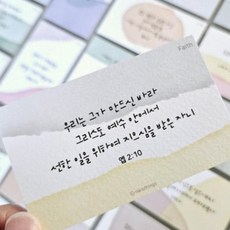 Faith
우리는 그가 만드신 바라
그리스도 예수 안에서
선한 일을 위하여 지으심을 받은 자니
엡 2:10